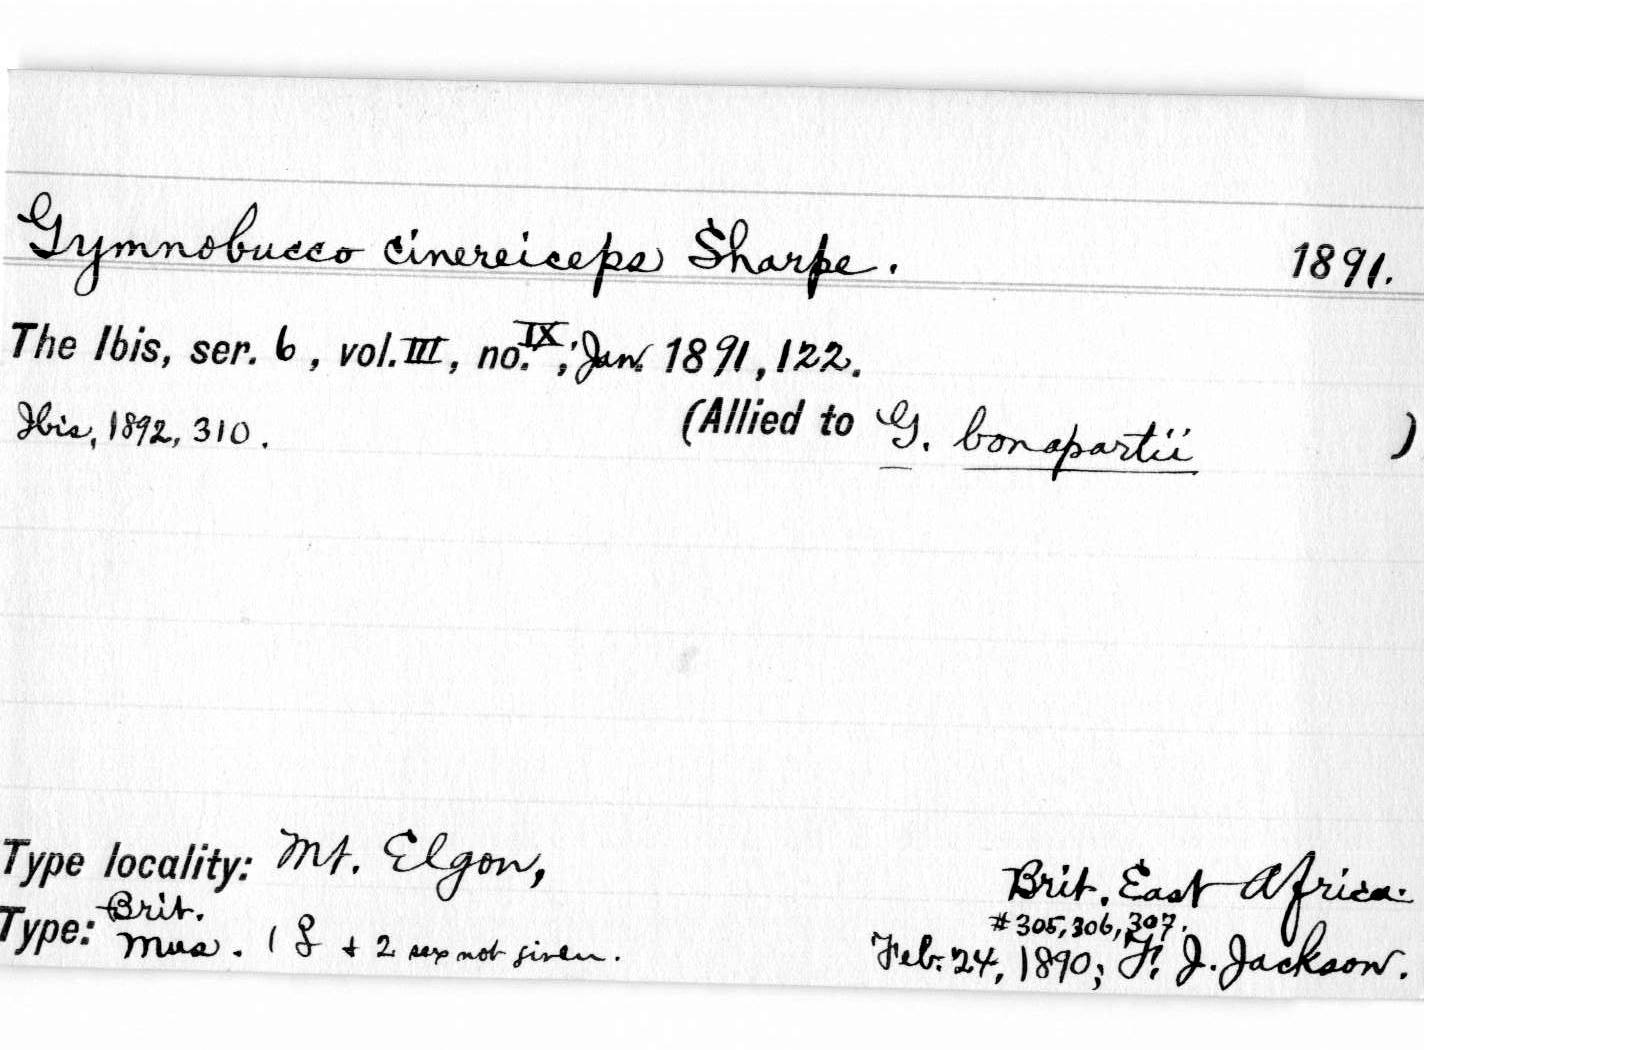 Gymnobucco cinereiceps Sharpe. 1891.
The Ibis, ser. 6, vol. III, no. IX, Jan. 1891, 122.
Ibis, 1892, 310. (Allied to G. bonapartii )
Type locality: Mt. Elgon, Brit. East Africa.
Type: Brit. Mus. 1 ♀ + 2 sex not given. #305, 306, 307.
Feb. 24, 1890; F. J. Jackson.